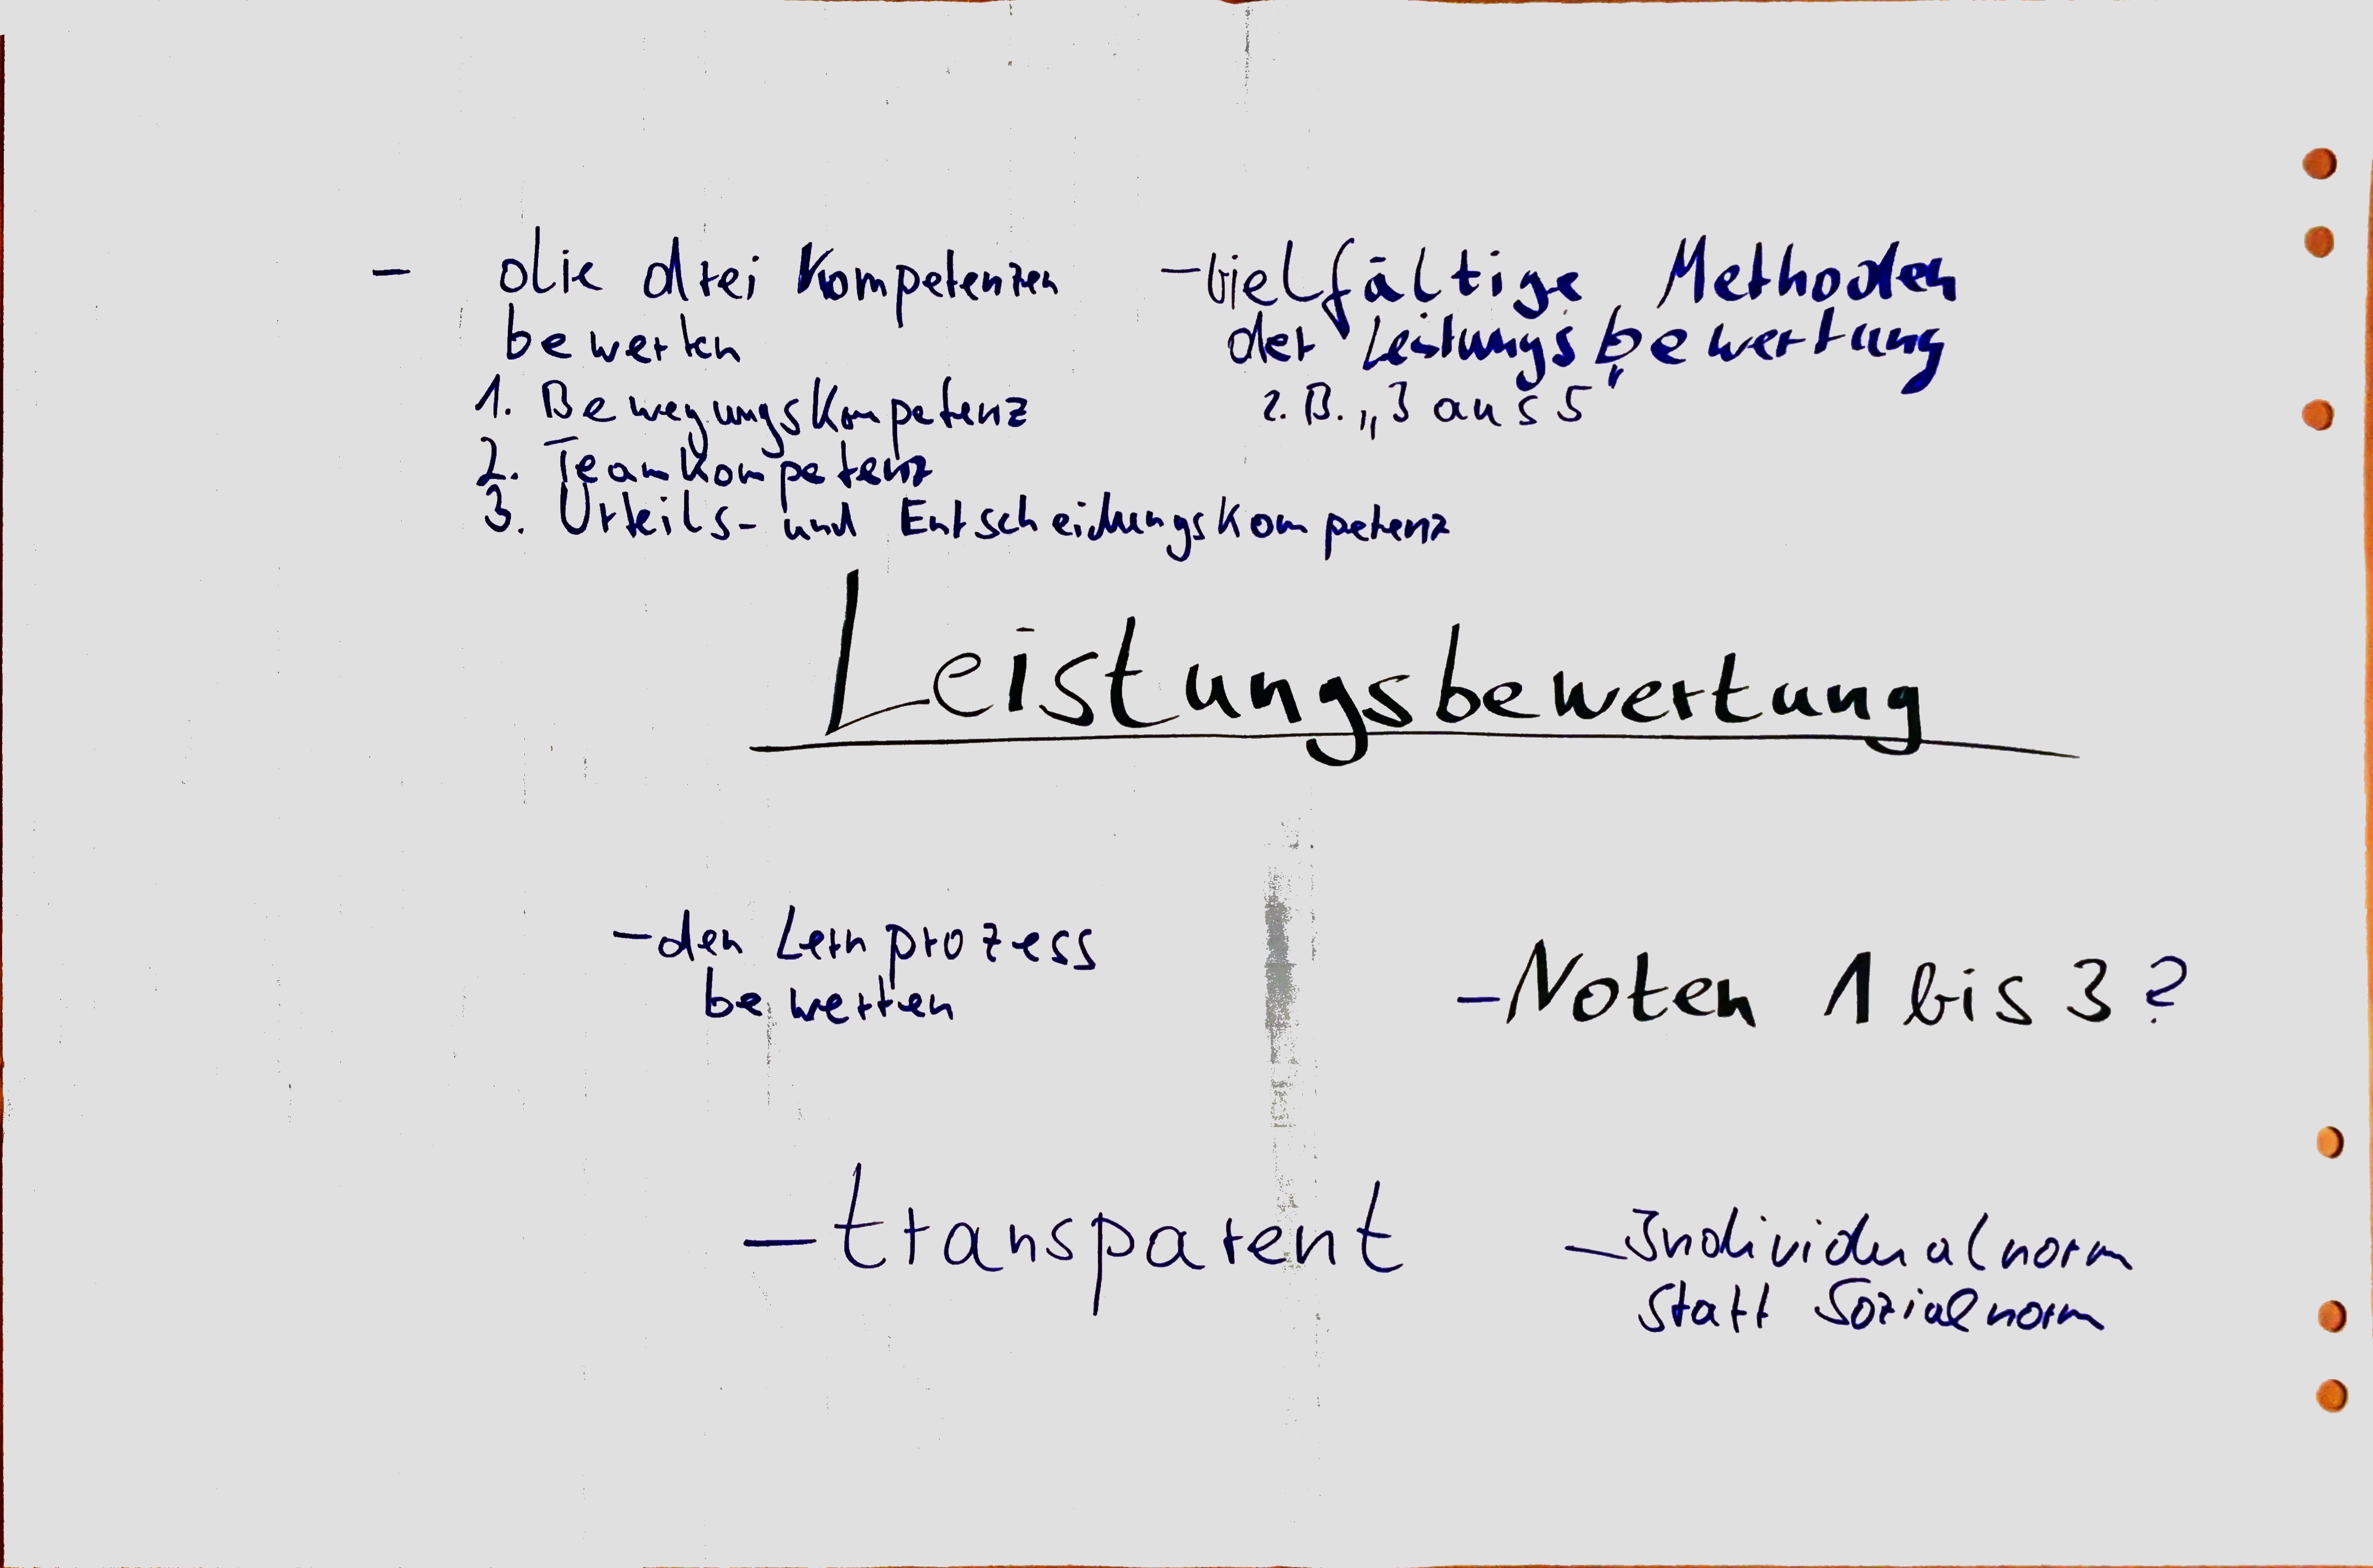 - die drei Kompetenzen
bewerten
1. Bewegungskompetenz
2. Teamkompetenz
3. Urteils- und Entscheidungskompetenz
- vielfältige Methoden
der Leistungsbewertung
z.B. „3 aus 5"
Leistungsbewertung
- den Lernprozess
bewerten
- Noten 1 bis 3?
- transparent
- Individualnorm
statt Sozialnorm